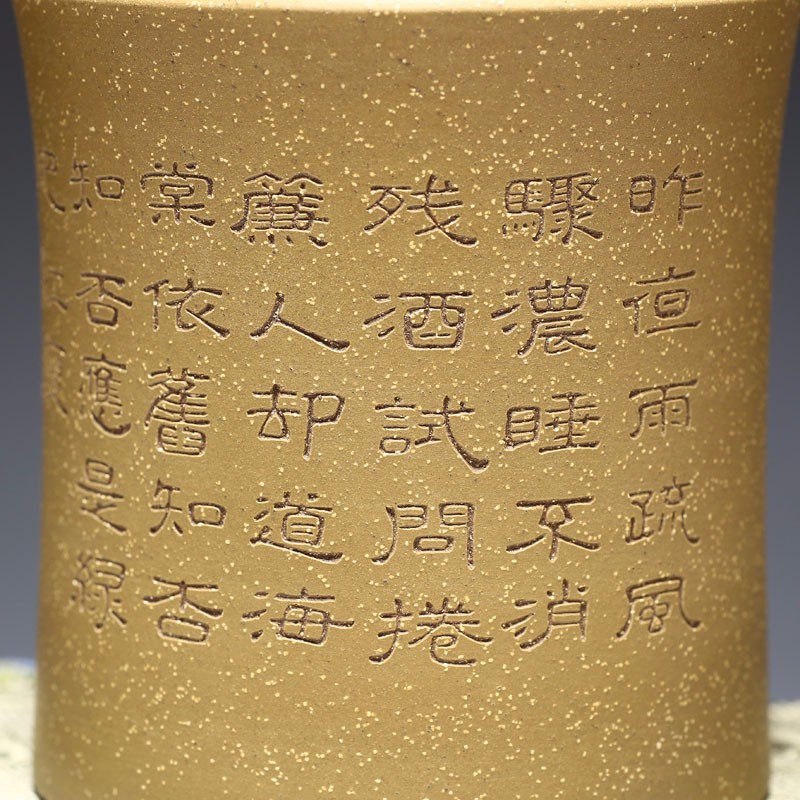 昨亱雨疏風
驟濃睡不消
残酒試問捲
簾人却道海
棠依舊知否
知否應是緑